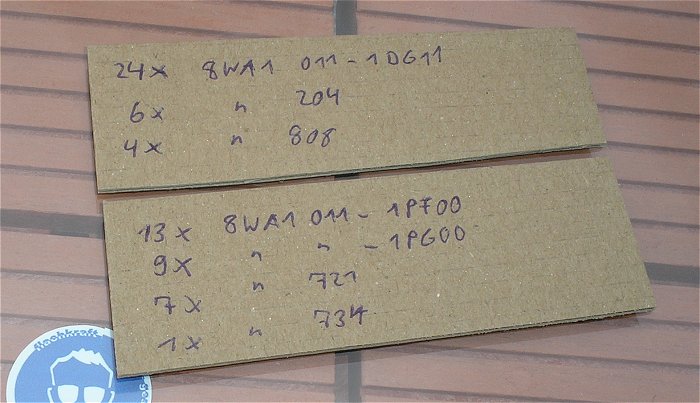 24x 8WA1 011-1DG11
6x " 204
4x " 808
13x 8WA1 011-1PF00
9x " " -1PG00
7x " 721
1x " 734
flashkraft